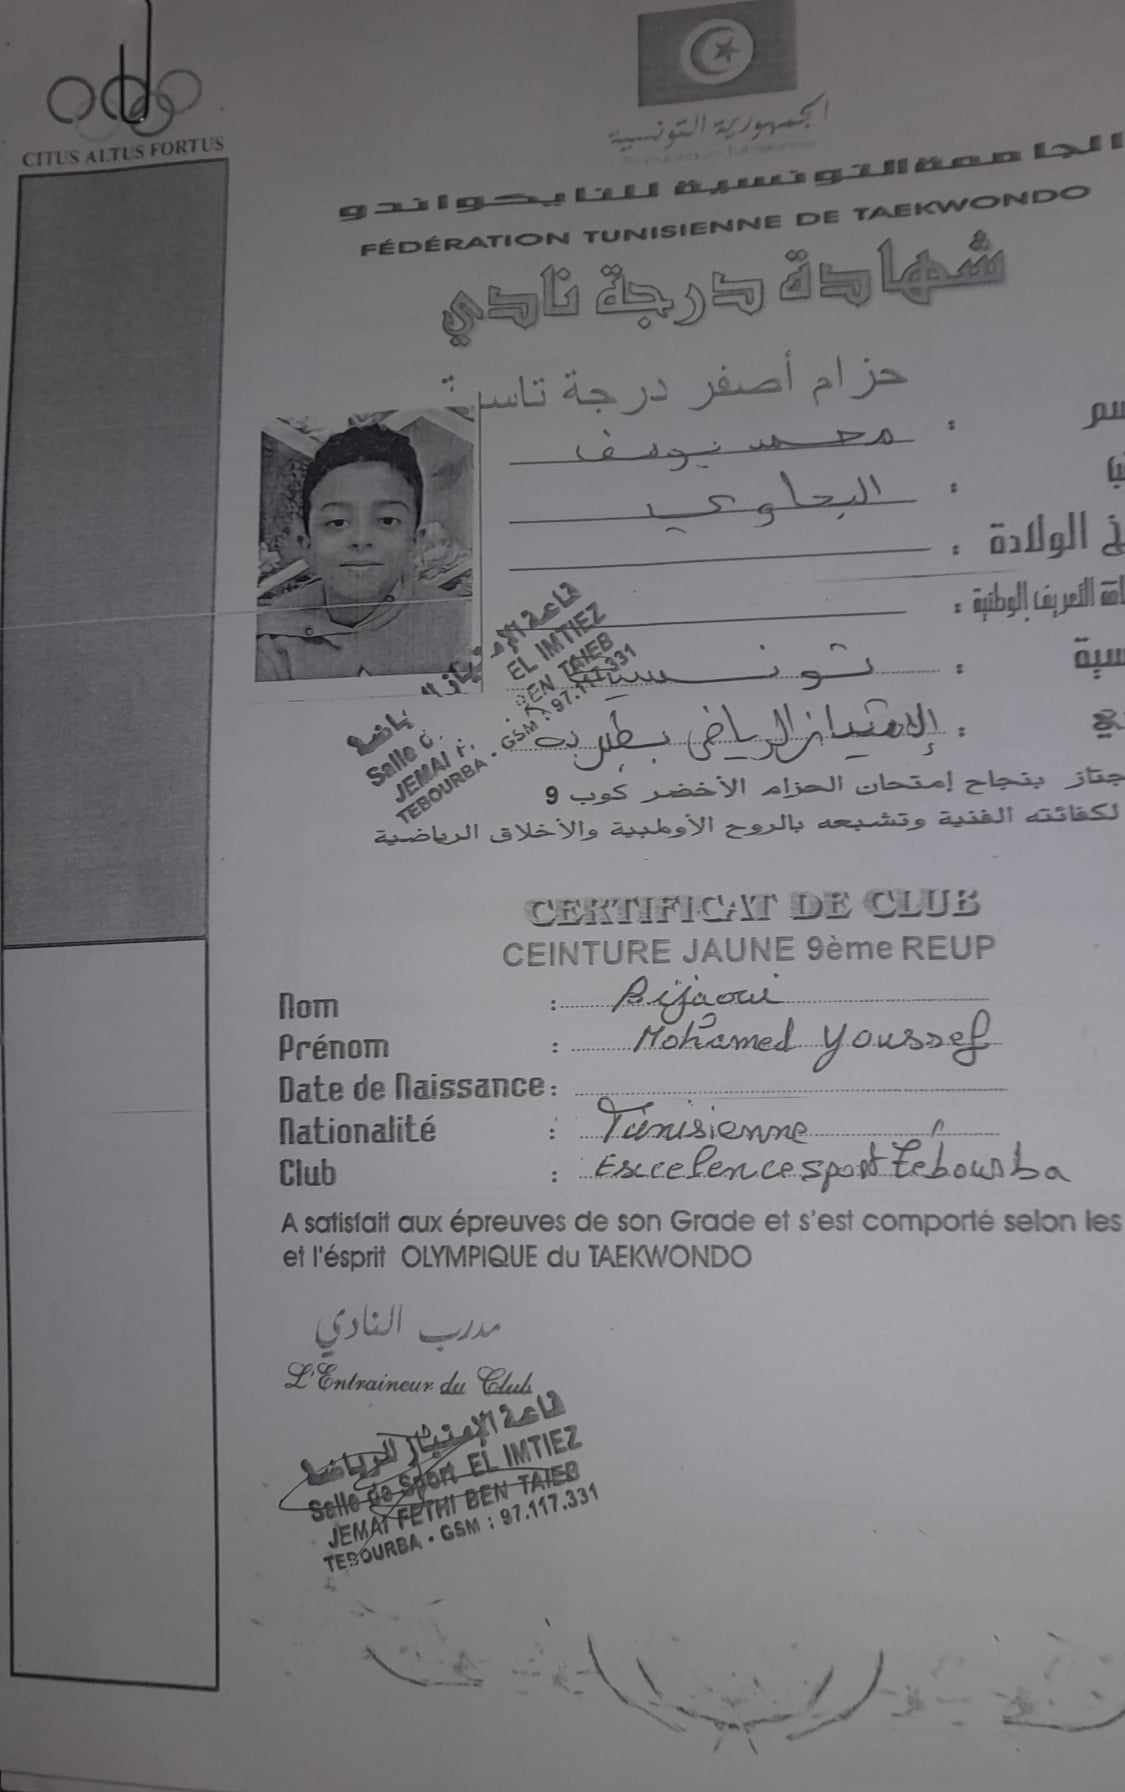 CITUS ALTUS FORTUS
الجمهورية التونسية
الجامعة التونسية للتايكواندو
FÉDÉRATION TUNISIENNE DE TAEKWONDO
شهادة درجة نادي
حزام أصفر درجة
: محمد يوسف
: البجاوي
الولادة :
التعريف الوطنية :
:
: الإمتياز الرياضي بطبربة
بنجاح إمتحان الحزام الأخضر كوب 9
لكفائته الفنية وتشبعه بالروح الأولمبية والأخلاق الرياضية
EL IMTIEZ
BEN TAIEB
TEBOURBA - GSM : 97.117.331
CERTIFICAT DE CLUB
CEINTURE JAUNE 9ème REUP
Nom : Bijaoui
Prénom : Mohamed Youssef
Date de Naissance :
Nationalité : Tunisienne
Club : Excelence sport Tebourba
A satisfait aux épreuves de son Grade et s'est comporté selon les
et l'ésprit OLYMPIQUE du TAEKWONDO
مدرب النادي
L'Entraineur du Club
قاعة الإمتياز الرياضية
Salle de Sport EL IMTIEZ
JEMAI FETHI BEN TAIEB
TEBOURBA - GSM : 97.117.331